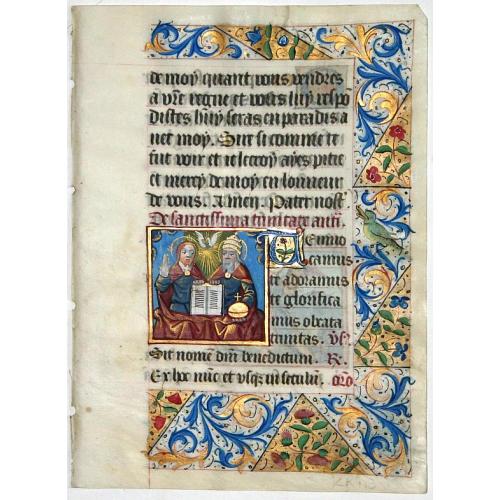 de moy quant vous vendres
a vre regne et vous luy respo
distes huy seras en paradis a
uec moy. Sire si comme ce
fut voir et ie le croy ayes pitie
et mercy de moy en lonneur
de vous. Amen. Pater nost.
De sanctissima trinitate anti.
Te inuo
camus
te adoramus
te glorifica
mus o beata
trinitas. vs.
Sit nome dni benedictum. R.
Ex hoc nuc et vsq; in seculu. oro